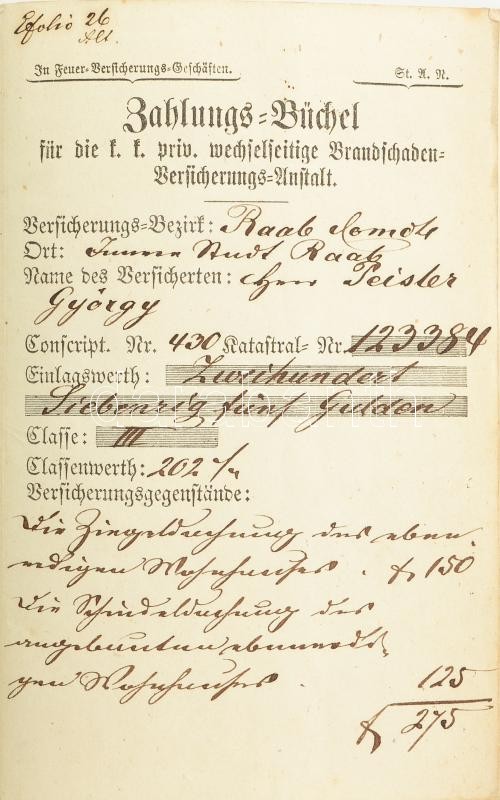 folio 26
In Feuer-Versicherungs-Geschäften. St. A. N.
Zahlungs-Büchel
für die k. k. priv. wechselseitige Brandschaden-
Versicherungs-Anstalt.
Versicherungs-Bezirk: Raab
Ort: Innere Stadt Raab
Name des Versicherten: Herr Peisler
György
Conscript. Nr. 430 Katastral-Nr. 123384
Einlagswerth: Zweihundert
Siebenzig fünf Gulden
Classe: III
Classenwerth: 202
Versicherungsgegenstände:
Die Ziegeldachung des eben-
erdigen Wohnhauses . f 150
Die Schindeldachung des
angebauten ebenerdi-
gen Wohnhauses . 125
f 275